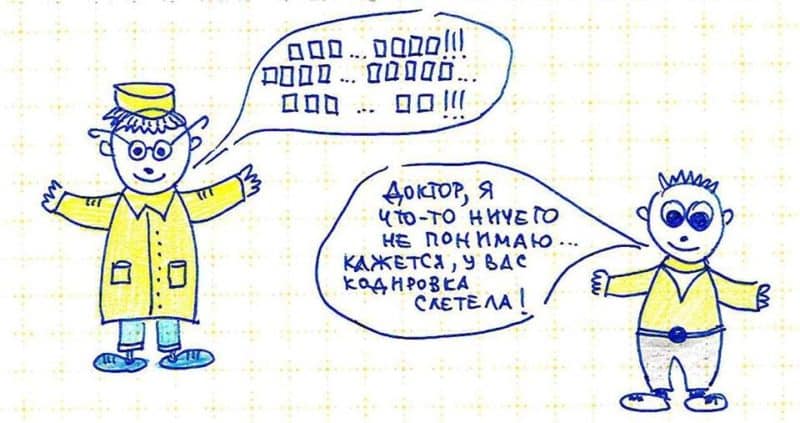 ▯▯▯ ... ▯▯▯▯!!!
▯▯▯▯ ... ▯▯▯▯▯...
▯▯▯ ... ▯▯!!!
ДОКТОР, Я
ЧТО-ТО НИЧЕГО
НЕ ПОНИМАЮ...
КАЖЕТСЯ, У ВАС
КОДИРОВКА
СЛЕТЕЛА!